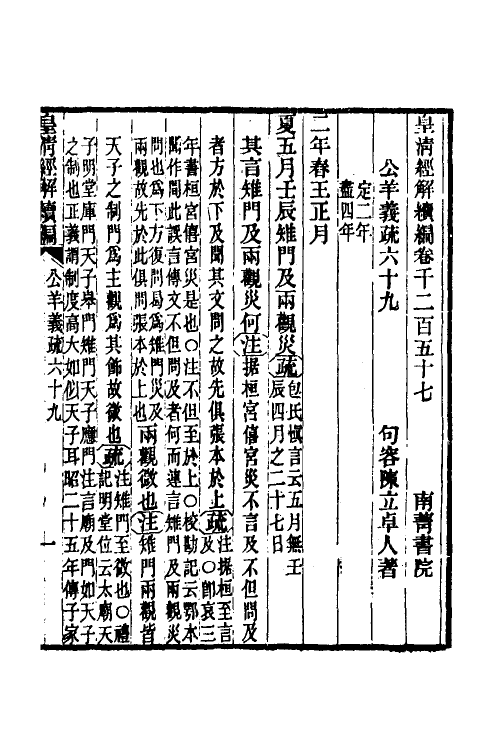 皇清經解續編卷千二百五十七 南菁書院
公羊義疏六十九 句容陳立卓人著
定二年
盡四年
二年春王正月
夏五月壬辰雉門及兩觀災疏包氏愼言云五月無壬
辰四月之二十七日
其言雉門及兩觀災何注据桓宮僖宮災不言及不但問及
者方於下及聞其文問之故先俱張本於上疏注据桓至言
及○卽哀三
年書桓宮僖宮災是也○注不但至於上○校勘記云鄂本
聞作間此誤言傳文不但問及者何而連言雉門及兩觀災
問也爲下方復問曷爲雉門災及
兩觀故先於此俱問張本於上也
兩觀微也注雉門兩觀皆
天子之制門爲主觀爲其飾故微也疏注雉門至微也○禮
記明堂位云太廟天
子明堂庫門天子皋門雉門天子應門注言廟及門如天子
之制也正義謂制度高大如似天子耳昭二十五年傳子家
皇清經解續編 公羊義疏六十九 一